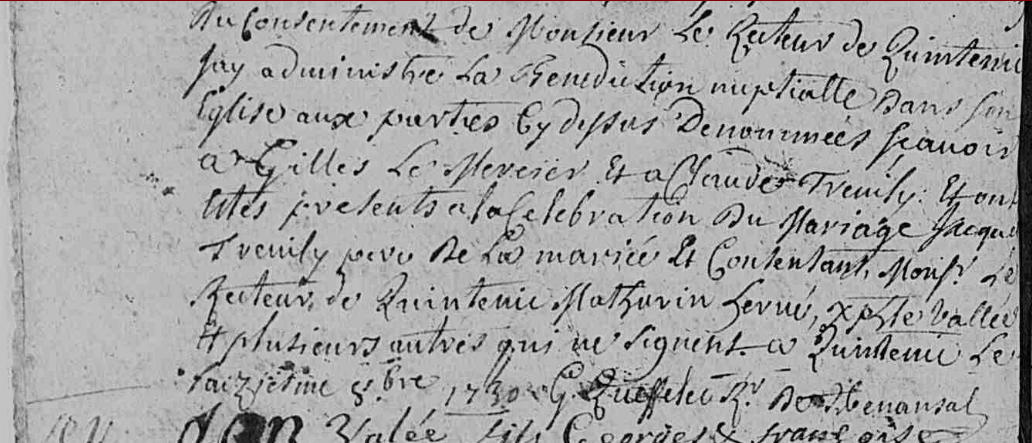 Du Consentement de Monsieur Le Recteur de Quintenic
Jay administré La Benediction nuptialle Dans son
Eglise aux parties Cy dessus Denommées scavoir
a Gilles Le Mercier Et a Claude Treuily. Et ont
Estés présents a la Celebration Du Mariage Jacque
Treuily pere De La mariée Et Contentant, Monsr. Le
Recteur de Quintenic Mathurin hervé, xphle Vallée
Et plusieurs autres qui ne signent a Quintenic Le
saizjesme 8.bre 1730 G. Queffelec Rr. De henansal
Jan Valée fils Georges & francoise